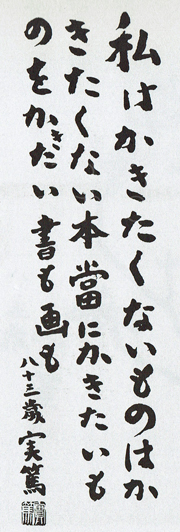 私はかきたくないものはか
きたくない本當にかきたいも
のをかきたい書も画も
八十三歳 実篤